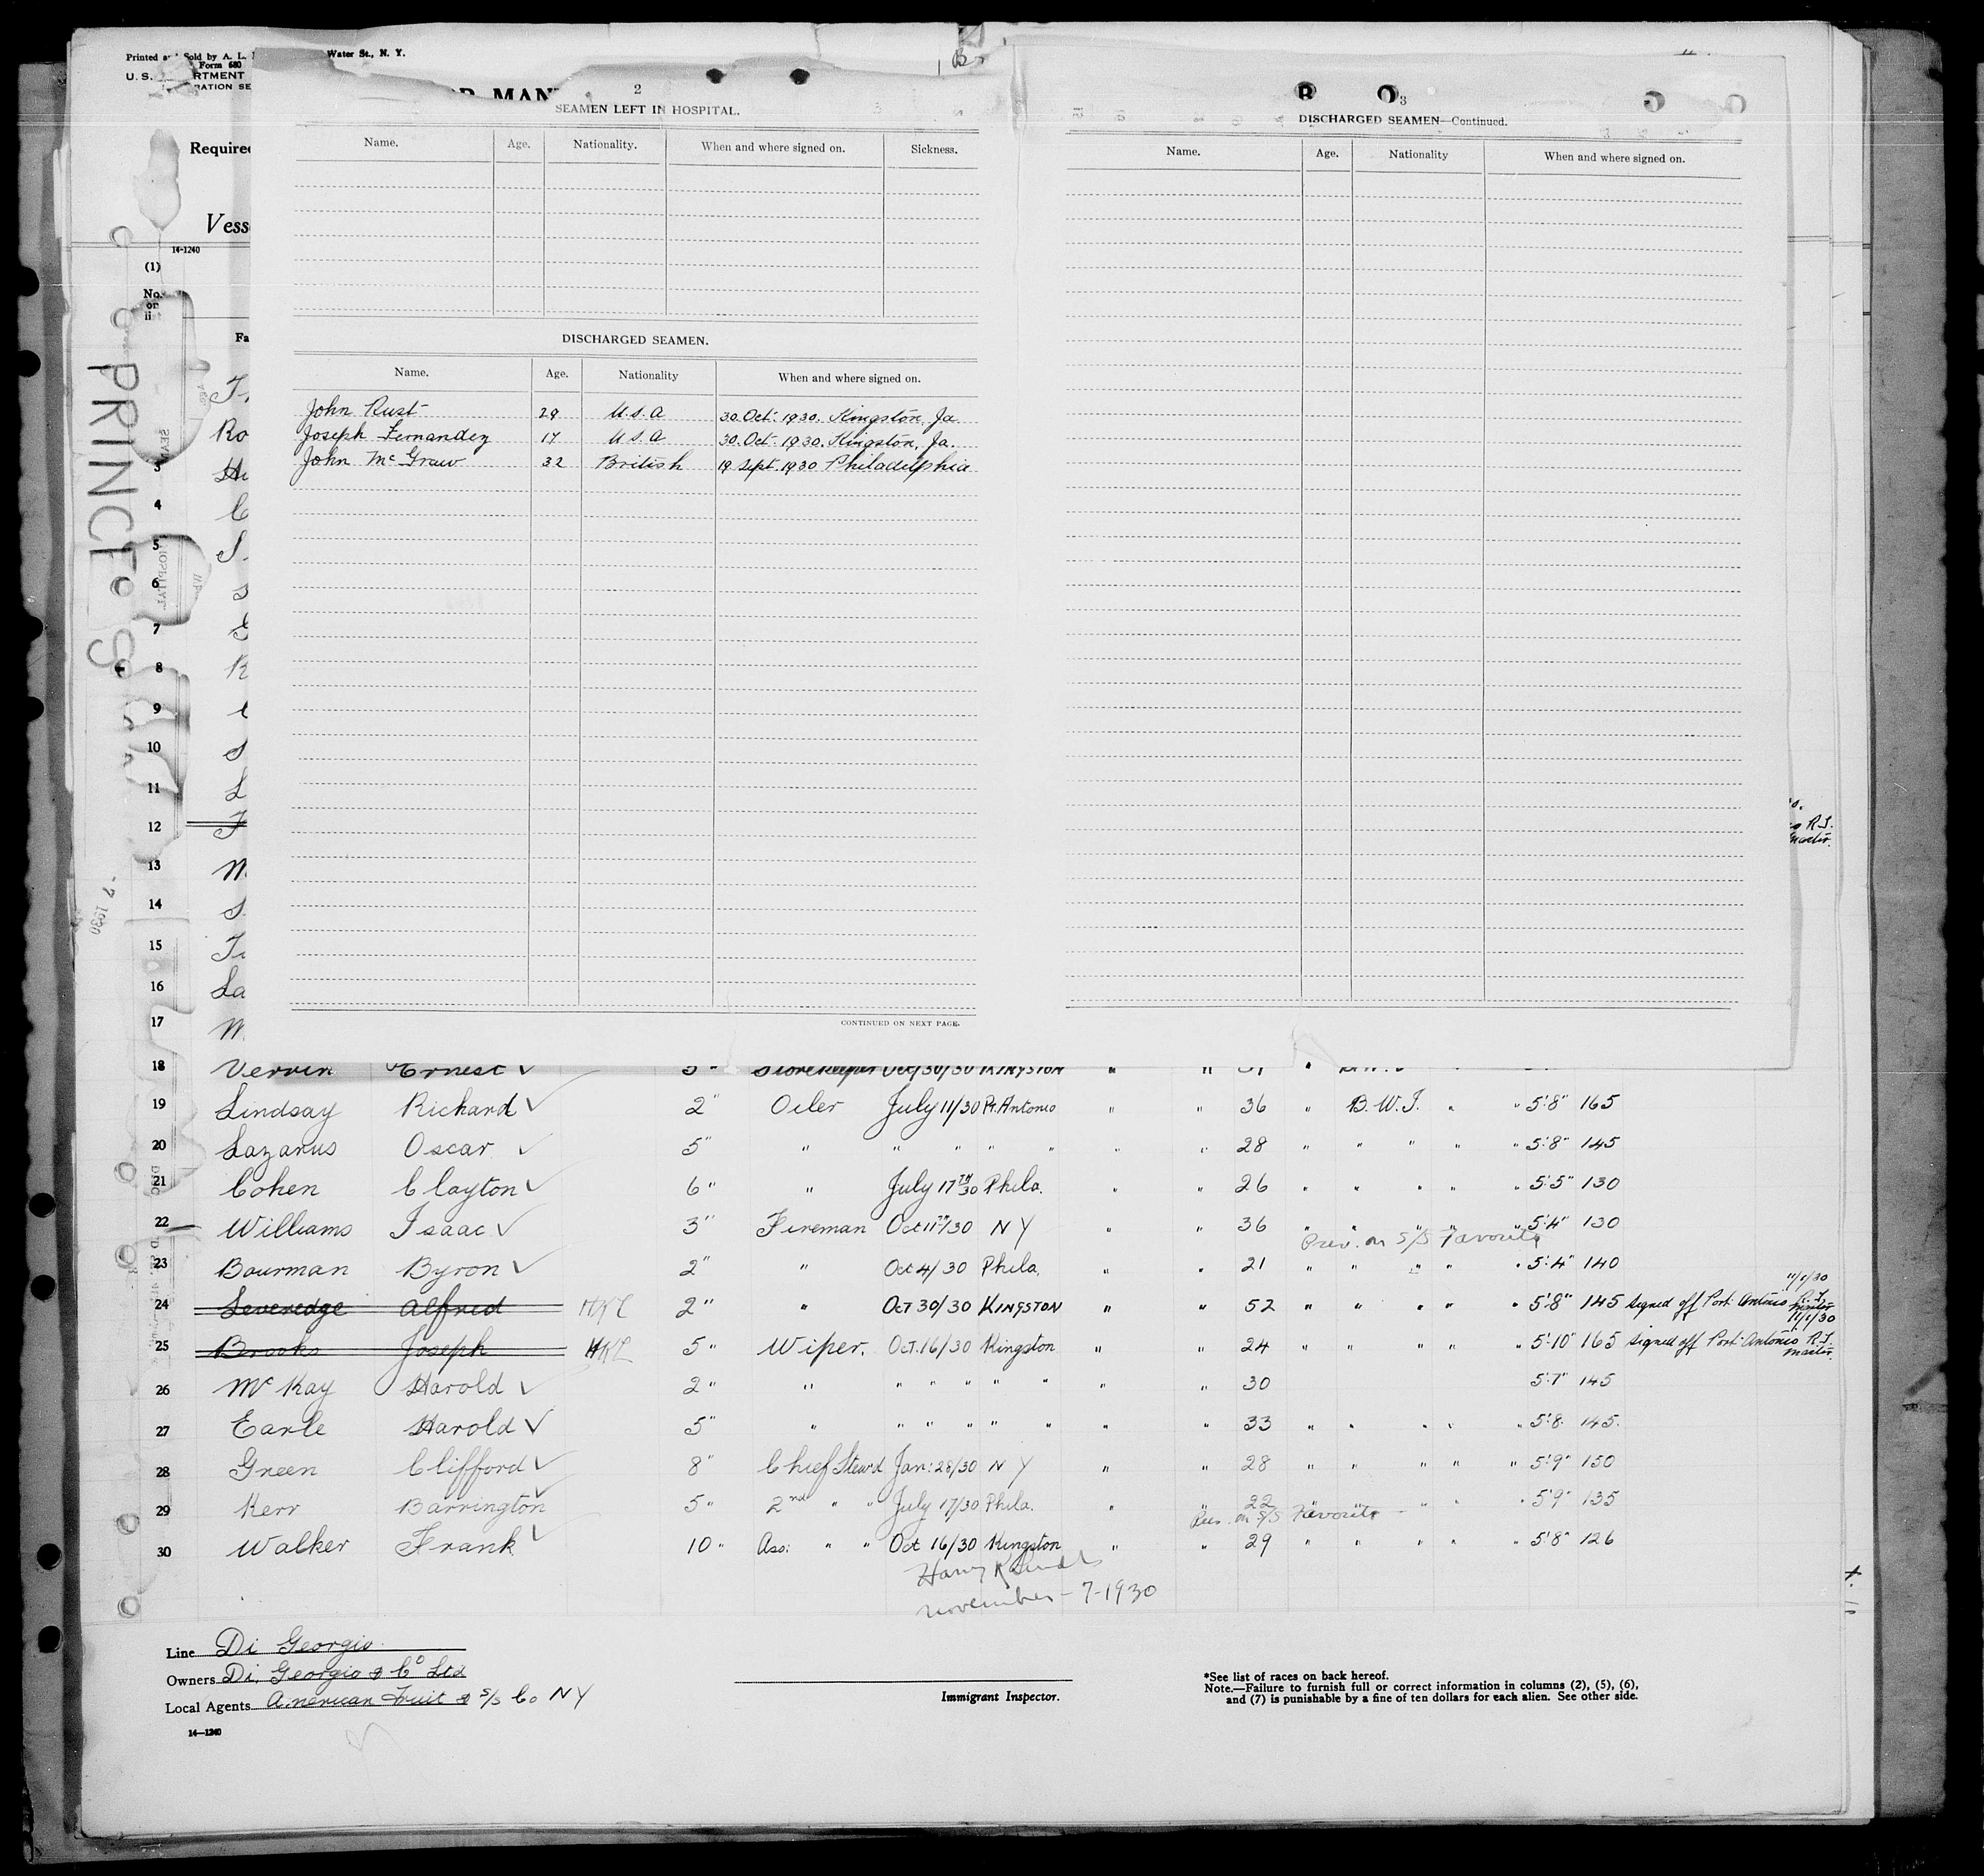 Printed Sold by A. L. Water St., N. Y.
Form 680
U. S.
Required
Vess
14-1240
(1)
No.
on
list
Fa
PRINCE
2
SEAMEN LEFT IN HOSPITAL.
Name. Age. Nationality. When and where signed on. Sickness.
DISCHARGED SEAMEN.
Name. Age. Nationality When and where signed on.
John Rust 29 U.S.A 30. Oct. 1930. Kingston, Ja
Joseph Fernandez 17 U.S.A 30. Oct. 1930. Kingston, Ja.
John Mc Graw 32 British 19 Sept. 1930 Philadelphia
CONTINUED ON NEXT PAGE.
3
DISCHARGED SEAMEN—Continued.
Name. Age. Nationality When and where signed on.
3
4
5
6
7
8
9
10
11
12
13
14
15
16
17
18 Ernest ✓ Storekeeper Oct/30/30 Kingston " "
19 Lindsay Richard ✓ 2" Oiler July 11/30 Pt. Antonio " " 36 " B.W.I. " " 5'8" 165
20 Lazarus Oscar ✓ 5" " " " " " " " 28 " " " " " 5'8" 145
21 Cohen Clayton ✓ 6" " July 17TH 30 Phila. " " 26 " " " " " 5'5" 130
22 Williams Isaac ✓ 3" Fireman Oct 11TH/30 N Y " " 36 " " " " " 5'4" 130
Prev. on S/S Favorite
23 Bourman Byron ✓ 2" " Oct 4/30 Phila. " " 21 " " " " " 5'4" 140
24 Leveredge Alfred HKL 2" " Oct 30/30 Kingston " " 52 " " " " " 5'8" 145 signed off Port Antonio 11/1/30 R.I. Master
25 Brooks Joseph HKL 5" Wiper. Oct. 16/30 Kingston " " 24 " " " " " 5'10" 165 signed off Port Antonio 11/1/30 R.I. Master.
26 Mc Kay Harold ✓ 2" " " " " " " " " 30 5'7" 145
27 Earle Harold ✓ 5" " " " " " " " " 33 " " " " " 5'8 145.
28 Green Clifford ✓ 8" Chief Steward Jan: 28/30 N Y " " 28 " " " " " 5'9" 150
29 Kerr Barrington ✓ 5" 2nd " " July 17/30 Phila. " " 22 " " " " " 5'9" 135
Prev. on S/S Favorite
30 Walker Frank ✓ 10" Ass: " " Oct 16/30 Kingston " " 29 " " " " " 5'8" 126
November - 7-1930
Line Di Georgio
Owners Di. Georgio & Co Ltd
Local Agents American Fruit & S/S Co N Y
14—1240
Immigrant Inspector.
*See list of races on back hereof.
Note.—Failure to furnish full or correct information in columns (2), (5), (6),
and (7) is punishable by a fine of ten dollars for each alien. See other side.